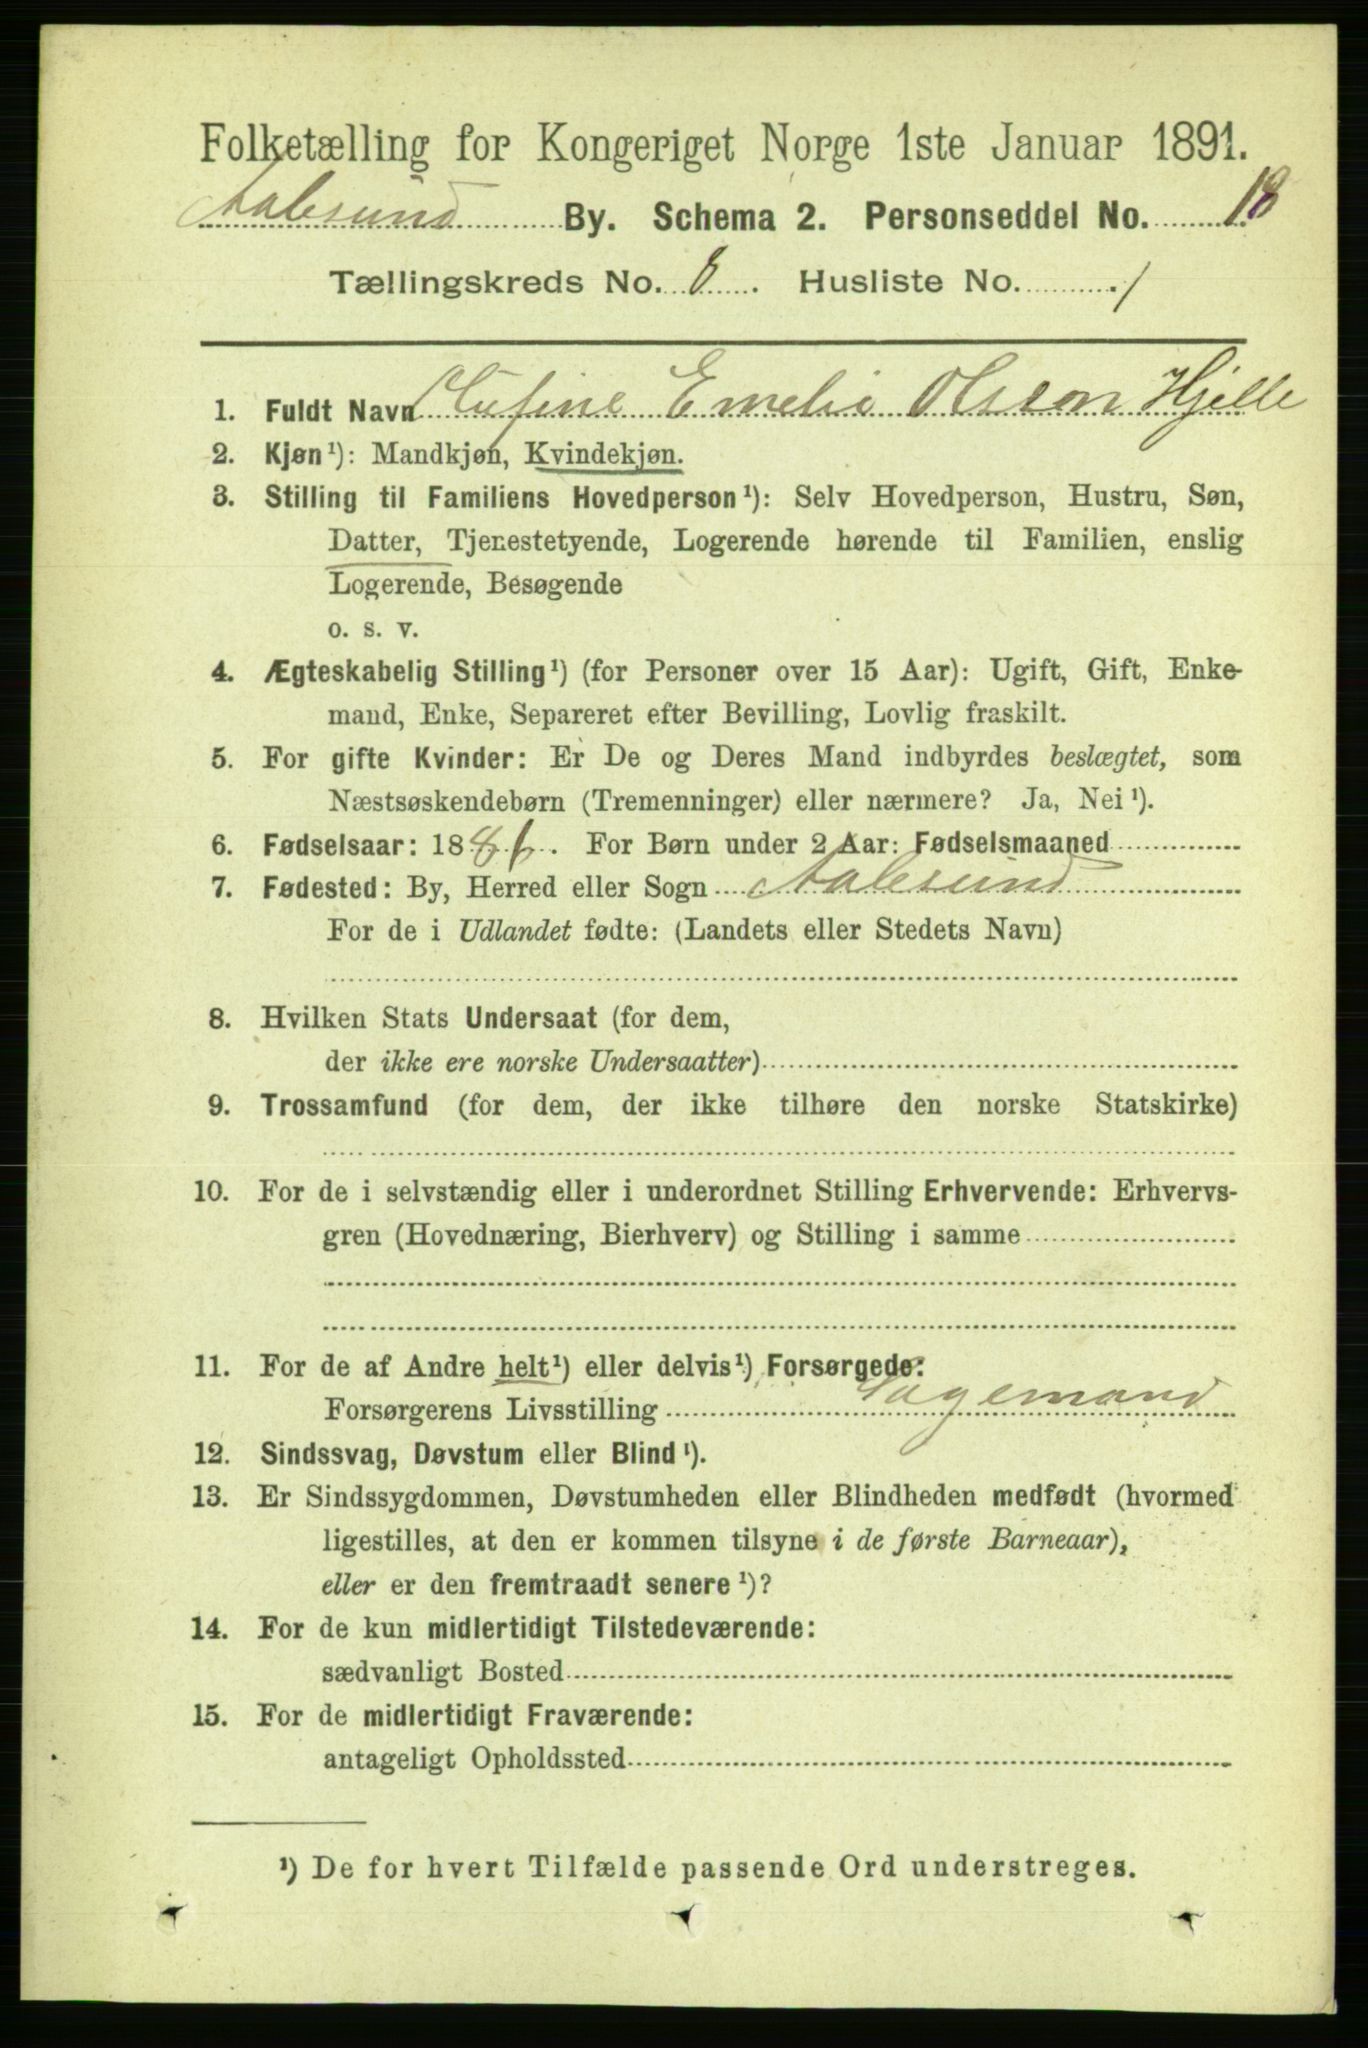 Folketælling for Kongeriget Norge 1ste Januar 1891.
Aalesund By. Schema 2. Personseddel No. 18
Tællingskreds No. 8. Husliste No. 1
1. Fuldt Navn Emelie Olsson Hjelle
2. Kjøn¹): Mandkjøn, Kvindekjøn.
3. Stilling til Familiens Hovedperson¹): Selv Hovedperson, Hustru, Søn,
Datter, Tjenestetyende, Logerende hørende til Familien, enslig
Logerende, Besøgende
o. s. v.
4. Ægteskabelig Stilling¹) (for Personer over 15 Aar): Ugift, Gift, Enke-
mand, Enke, Separeret efter Bevilling, Lovlig fraskilt.
5. For gifte Kvinder: Er De og Deres Mand indbyrdes beslægtet, som
Næstsøskendebørn (Tremenninger) eller nærmere? Ja, Nei¹).
6. Fødselsaar: 188 . For Børn under 2 Aar: Fødselsmaaned
7. Fødested: By, Herred eller Sogn Aalesund
For de i Udlandet fødte: (Landets eller Stedets Navn)
8. Hvilken Stats Undersaat (for dem,
der ikke ere norske Undersaatter)
9. Trossamfund (for dem, der ikke tilhøre den norske Statskirke)
10. For de i selvstændig eller i underordnet Stilling Erhvervende: Erhvervs-
gren (Hovednæring, Bierhverv) og Stilling i samme
11. For de af Andre helt¹) eller delvis¹) Forsørgede:
Forsørgerens Livsstilling Sagemand
12. Sindssvag, Døvstum eller Blind¹).
13. Er Sindssygdommen, Døvstumheden eller Blindheden medfødt (hvormed
ligestilles, at den er kommen tilsyne i de første Barneaar),
eller er den fremtraadt senere¹)?
14. For de kun midlertidigt Tilstedeværende:
sædvanligt Bosted
15. For de midlertidigt Fraværende:
antageligt Opholdssted
¹) De for hvert Tilfælde passende Ord understreges.